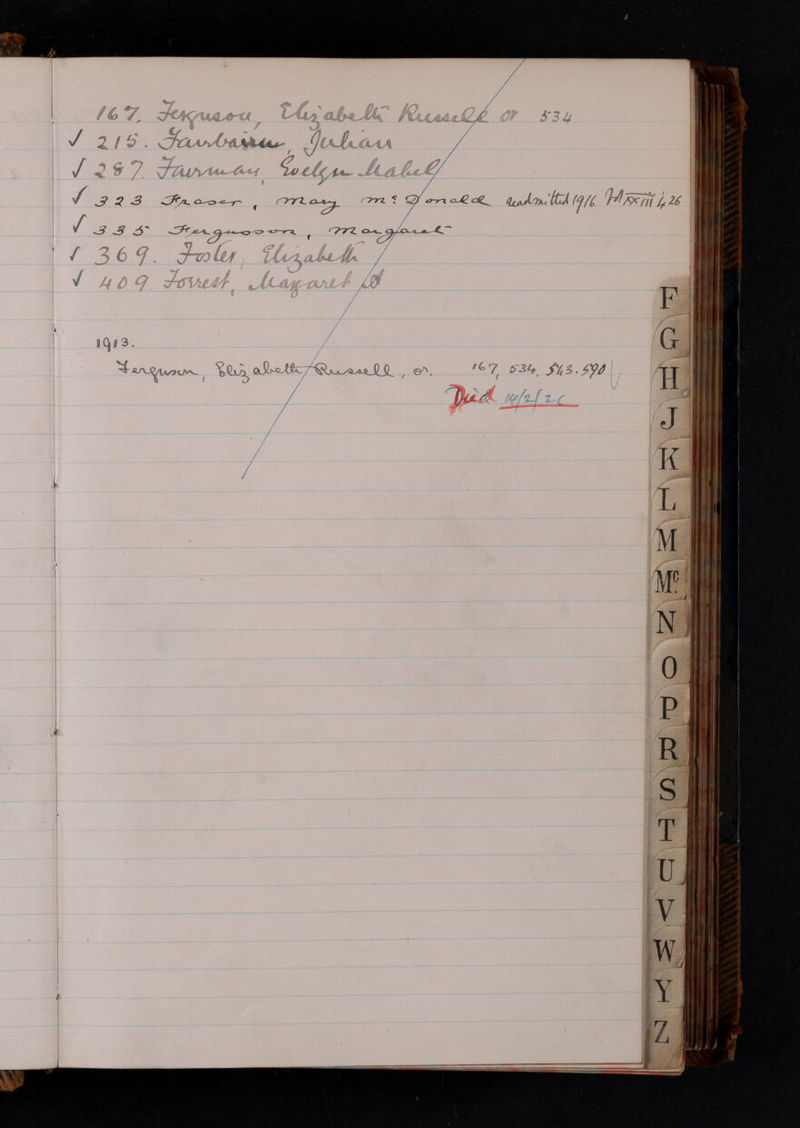 167. Ferguson, Elizabeth Russell or 534
√ 215. Fairbairn, Julian
√ 287. Fairman, Evelyn Mabel
√ 323 Fraser, Mary McDonald readmitted 1916 426
√ 335 Fergusson, Margaret
√ 369. Foster, Elizabeth
√ 409. Forrest, Margaret
1913.
Ferguson, Elizabeth Russell, or. 167, 534, 543. 590
Died 14/2/26
F
G
H
J
K
L
M
Mc
N
O
P
R
S
T
U
V
W
Y
Z